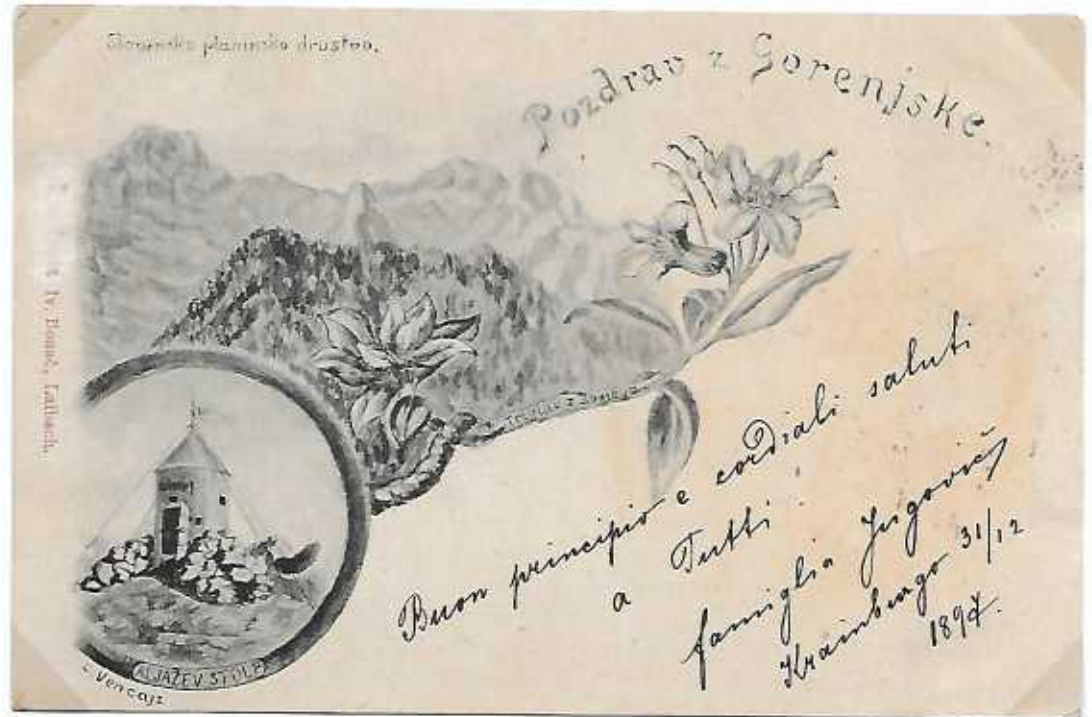 Slovensko planinsko društvo.
Pozdrav z Gorenjske.
Iv. Bonač, Laibach.
Triglav z
ALJAŽEV STOLP
Vencajz
Buon principio e cordiali saluti
a Tutti
famiglia Jugovič
Krainburgo 31/12
1897.